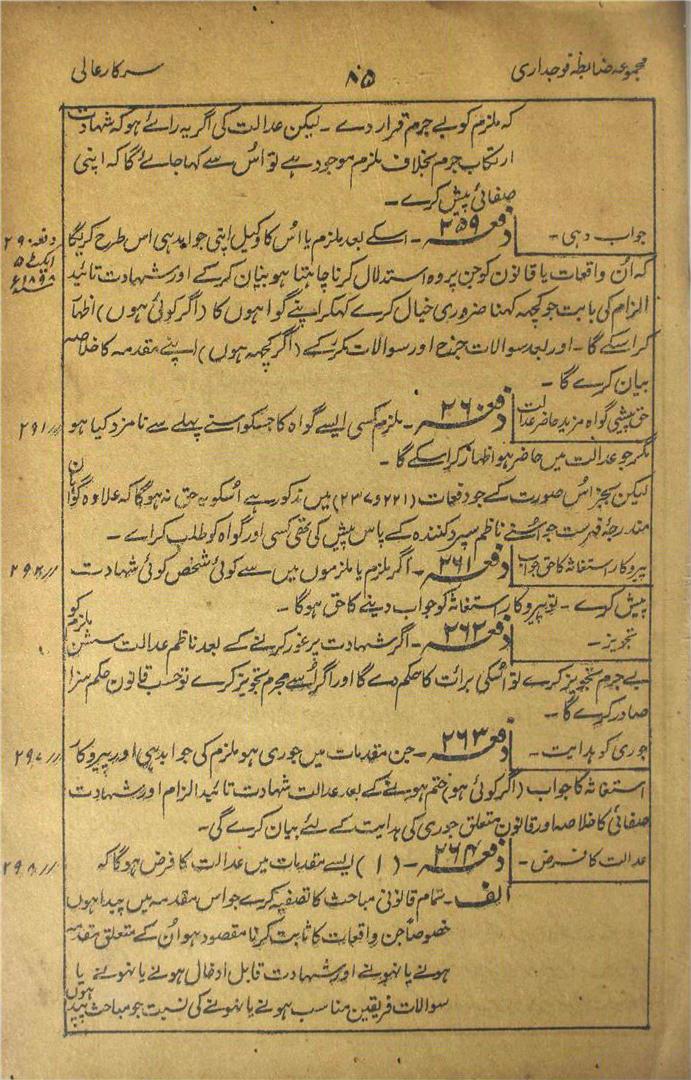 مجموعہ ضابطہ فوجداری ۸۵ سرکار عالی
کہ ملزم کو بے جرم قرار دے ۔ لیکن عدالت کی اگر یہ رائے ہو کہ شہادت
ارتکاب جرم بخلاف ملزم موجود ہے تو اُس سے کہا جائے گا کہ اپنی
صفائی پیش کرے ۔
جواب دہی ۔ دفعہ ۲۵۹ ۔ اسکے بعد ملزم یا اُس کا وکیل اپنی جوابدہی اس طرح کریگا دفعہ ۲۹۰
ایکٹ ۵
۱۸۹۸ء
کہ اُن واقعات یا قانون کو جن پر وہ استدلال کرنا چاہتا ہو بیان کرے اور شہادت تائید
الزام کی بابت جو کچھہ کہنا ضروری خیال کرے کہکر اپنے گواہوں کا (اگر کوئی ہوں) اظہار
کرا سکے گا ۔ اور بعد سوالات جرح اور سوالات مکرر کے (اگر کچھہ ہوں) اپنے مقدمہ کا خلاصہ
بیان کرے گا ۔
حق پیشی گواہ مزید حاضر عدالت دفعہ ۲۶۰ ۔ ملزم کسی ایسے گواہ کا جسکو اسنے پہلے سے نامزد کیا ہو ٫٫ ۲۹۱
مگر جو عدالت میں حاضر ہو اظہار کرا سکے گا ۔
لیکن بجز اُس صورت کے جو دفعات (۲۲۱ و ۲۳۷) میں مذکور ہے اُسکو یہ حق نہ ہوگا کہ علاوہ گواہان
مندرجہ فہرست جو اُسنے ناظم سپرد کنندہ کے پاس پیش کی تھی کسی اور گواہ کو طلب کرائے ۔
پیروکار استغاثہ کا حق جواب دفعہ ۲۶۱ ۔ اگر ملزم یا ملزموں میں سے کوئی شخص کوئی شہادت ٫٫ ۲۹۲
پیش کرے ۔ تو پیروکار استغاثہ کو جواب دینے کا حق ہوگا ۔
تجویز ۔ دفعہ ۲۶۲ ۔ اگر شہادت پر غور کرنے کے بعد ناظم عدالت سشن ملزم کو
بے جرم تجویز کرے تو اُسکی برائت کا حکم دے گا اور اگر اُسے مجرم تجویز کرے تو حسب قانون حکم سزا
صادر کرے گا ۔
جوری کو ہدایت ۔ دفعہ ۲۶۳ ۔ جن مقدمات میں جوری ہو ملزم کی جوابدہی اور پیروکار ٫٫ ۲۹۷
استغاثہ کا جواب (اگر کوئی ہو) ختم ہونے کے بعد عدالت شہادت تائید الزام اور شہادت
صفائی کا خلاصہ اور قانون متعلق جوری کی ہدایت کے لئے بیان کرے گی ۔
عدالت کا فرض ۔ دفعہ ۲۶۴ ۔ (۱) ایسے مقدمات میں عدالت کا فرض ہوگا کہ ٫٫ ۲۹۸
الف ۔ تمام قانونی مباحث کا تصفیہ کرے جو اس مقدمہ میں پیدا ہوں
خصوصاً جن واقعات کا ثابت کرنا مقصود ہو اُن کے متعلق مقدمہ
ہونے یا نہونے اور شہادت قابل ادخال ہونے یا نہونے یا
سوالات فریقین مناسب ہونے یا نہونے کی نسبت جو مباحث پیدا ہوں